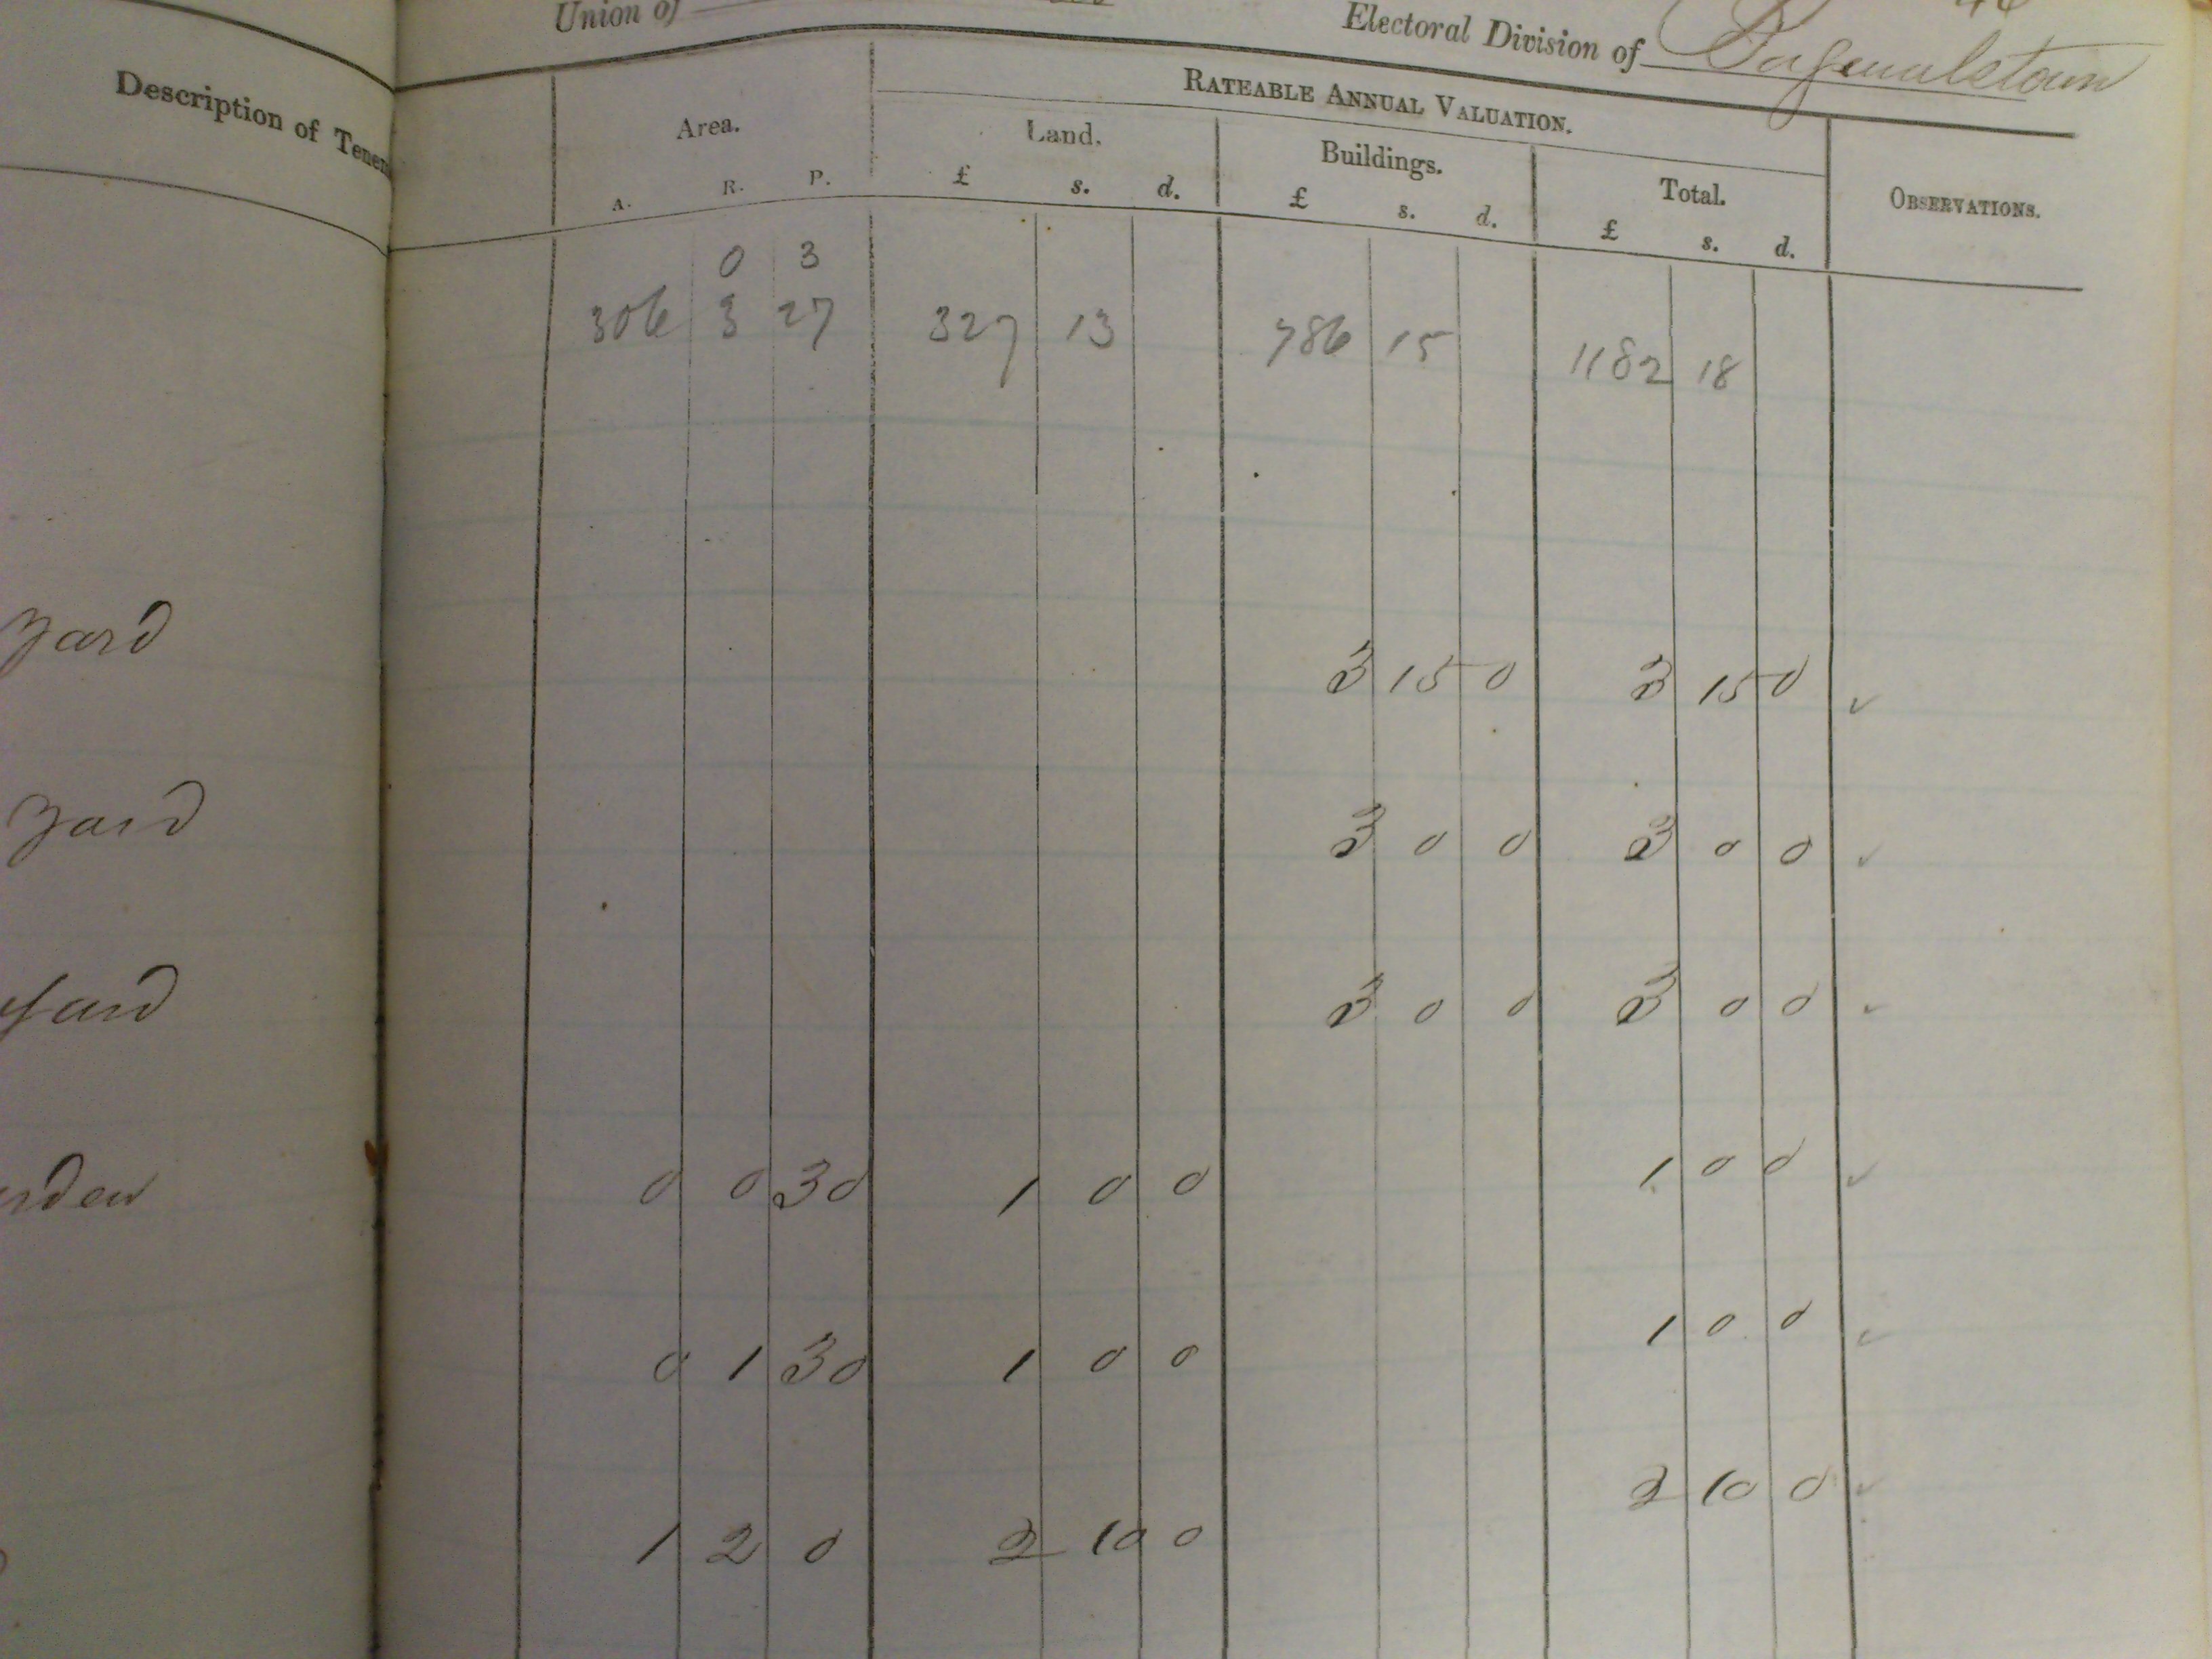 Union of
Electoral Division of Bagenalstown
Description of Tenem
Area.
RATEABLE ANNUAL VALUATION.
Land.
Buildings.
Total.
OBSERVATIONS.
A. R. P. £ s. d. £ s. d. £ s. d.
0 3
306 3 27 327 13 786 15 1182 18
yard 3 15 0 3 15 0 ✓
yard 3 0 0 3 0 0 ✓
yard 3 0 0 3 0 0 ✓
rden 0 0 30 1 0 0 1 0 0 ✓
0 1 30 1 0 0 1 0 0 ✓
1 2 0 2 10 0 2 10 0 ✓